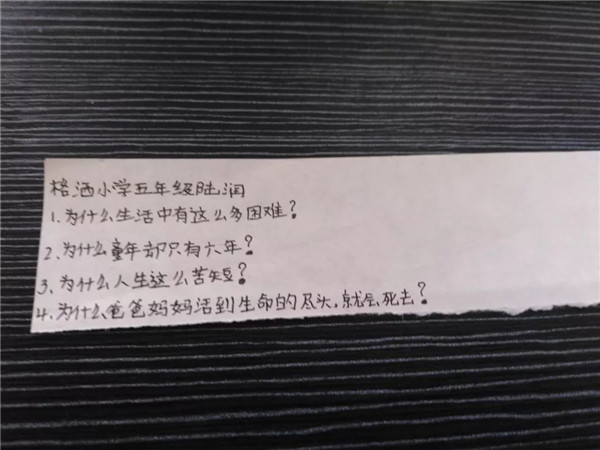 格洒小学五年级陆润
1.为什么生活中有这么多困难?
2.为什么童年却只有六年?
3.为什么人生这么苦短?
4.为什么爸爸妈妈活到生命的尽头,就会死去?